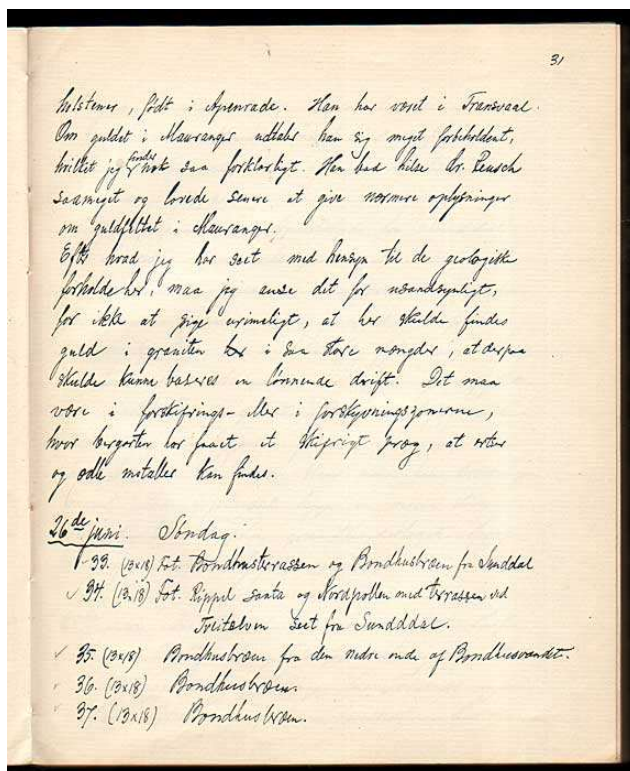 31
holstener, født i Apenrade. Han har været i Transvaal.
Om guldet i Mauranger udtaler han sig meget forbeholdent,
hvilket jeg finder nok saa forklarligt. Han bad hilse dr. Reusch
saameget og lovede senere at give nærmere oplysninger
om guldfeltet i Mauranger.
Efter hvad jeg har seet med hensyn til de geologiske
forholde her, maa jeg anse det for usandsynligt,
for ikke at sige urimeligt, at her skulde findes
guld i graniten i saa store mængder, at derpaa
skulde kunne baseres en lønnende drift. Det maa
være i forskifrings- eller i forskyvningszonerne,
hvor bergarten har faaet et skifrigt præg, at erter
og ædle metaller kan findes.
26de juni. Søndag.
33. (13x18) Fot. Bondhusterrassen og Bondhusbræen fra Sunddal
34. (13x18) Fot. og Nordpollen med terrassen ved
Tveitelven seet fra Sundddal.
35. (13x18) Bondhusbræen fra den nedre ende af Bondhusvandt.
36. (13x18) Bondhusbræen.
37. (13x18) Bondhusbræen.